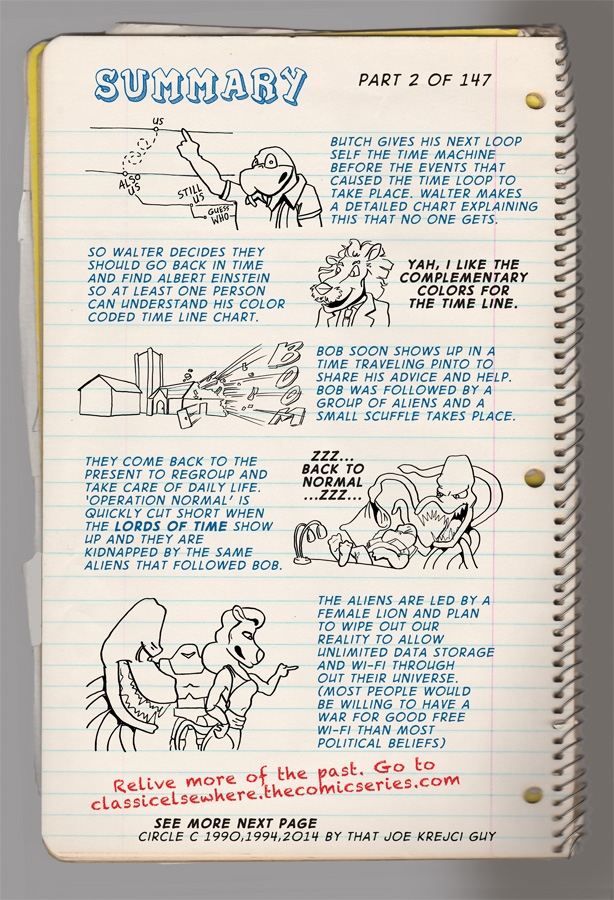 SUMMARY
PART 2 OF 147
US
ALSO
US
STILL
US
GUESS
WHO
BUTCH GIVES HIS NEXT LOOP
SELF THE TIME MACHINE
BEFORE THE EVENTS THAT
CAUSED THE TIME LOOP TO
TAKE PLACE. WALTER MAKES
A DETAILED CHART EXPLAINING
THIS THAT NO ONE GETS.
SO WALTER DECIDES THEY
SHOULD GO BACK IN TIME
AND FIND ALBERT EINSTEIN
SO AT LEAST ONE PERSON
CAN UNDERSTAND HIS COLOR
CODED TIME LINE CHART.
YAH, I LIKE THE
COMPLEMENTARY
COLORS FOR
THE TIME LINE.
BOOM
BOB SOON SHOWS UP IN A
TIME TRAVELING PINTO TO
SHARE HIS ADVICE AND HELP.
BOB WAS FOLLOWED BY A
GROUP OF ALIENS AND A
SMALL SCUFFLE TAKES PLACE.
THEY COME BACK TO THE
PRESENT TO REGROUP AND
TAKE CARE OF DAILY LIFE.
'OPERATION NORMAL' IS
QUICKLY CUT SHORT WHEN
THE LORDS OF TIME SHOW
UP AND THEY ARE
KIDNAPPED BY THE SAME
ALIENS THAT FOLLOWED BOB.
ZZZ...
BACK TO
NORMAL
...ZZZ...
THE ALIENS ARE LED BY A
FEMALE LION AND PLAN
TO WIPE OUT OUR
REALITY TO ALLOW
UNLIMITED DATA STORAGE
AND WI-FI THROUGH
OUT THEIR UNIVERSE.
(MOST PEOPLE WOULD
BE WILLING TO HAVE A
WAR FOR GOOD FREE
WI-FI THAN MOST
POLITICAL BELIEFS)
Relive more of the past. Go to
classicelsewhere.thecomicseries.com
SEE MORE NEXT PAGE
CIRCLE C 1990,1994,2014 BY THAT JOE KREJCI GUY